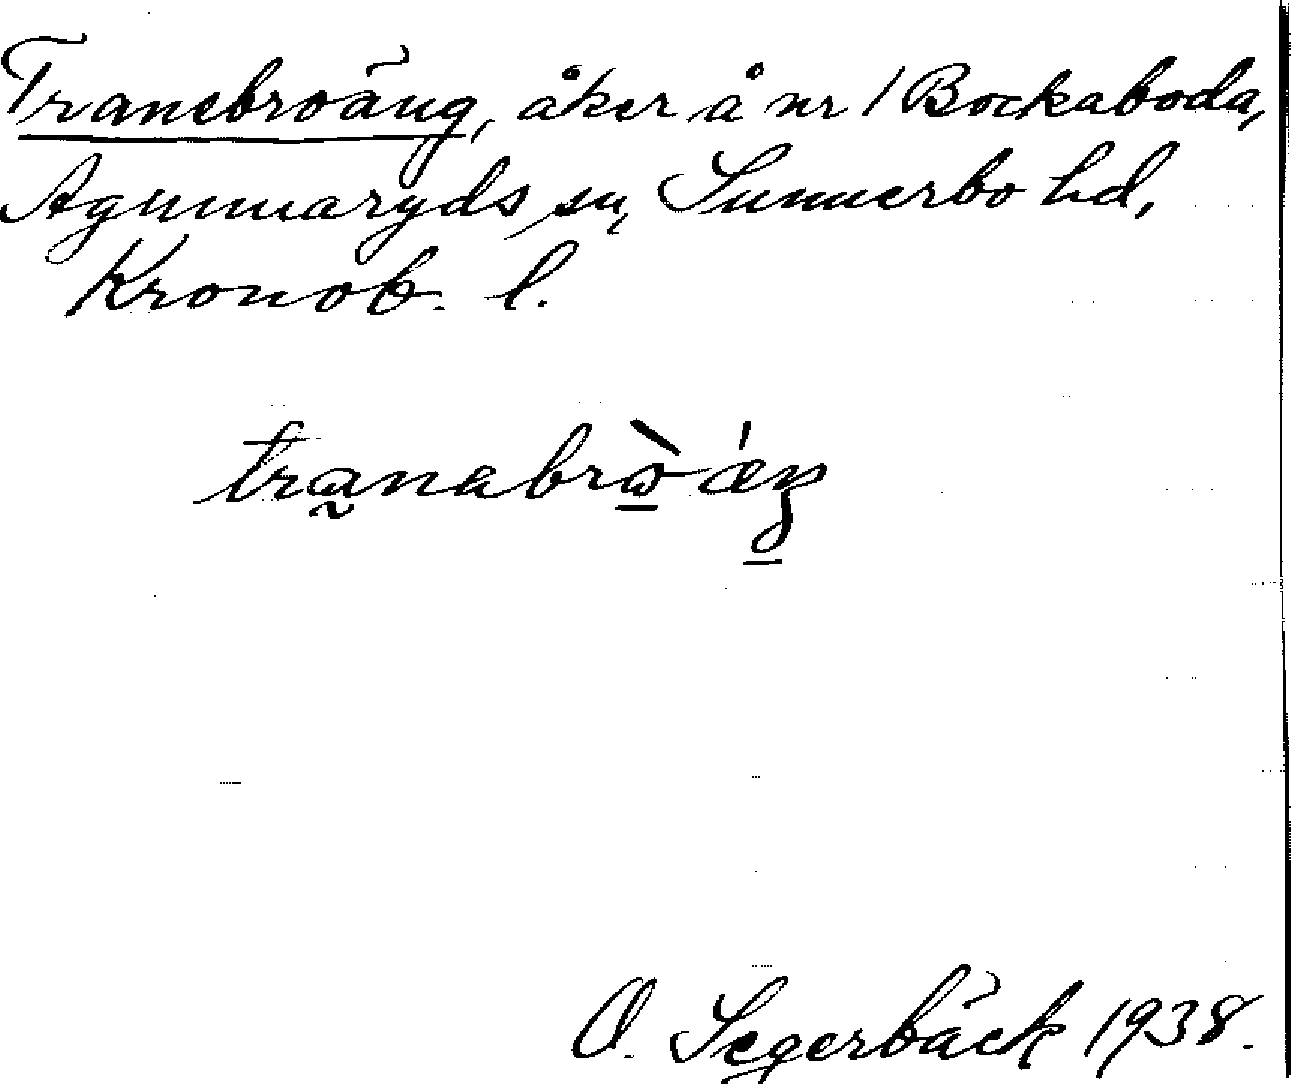 Tranebroäng, åker å nr 1 Bockaboda,
Agunnaryds sn, Sunnerbo hd,
Kronob. l.
tra̰nabrɷ̱̀ǽŋ̱
O. Segerbäck 1938.